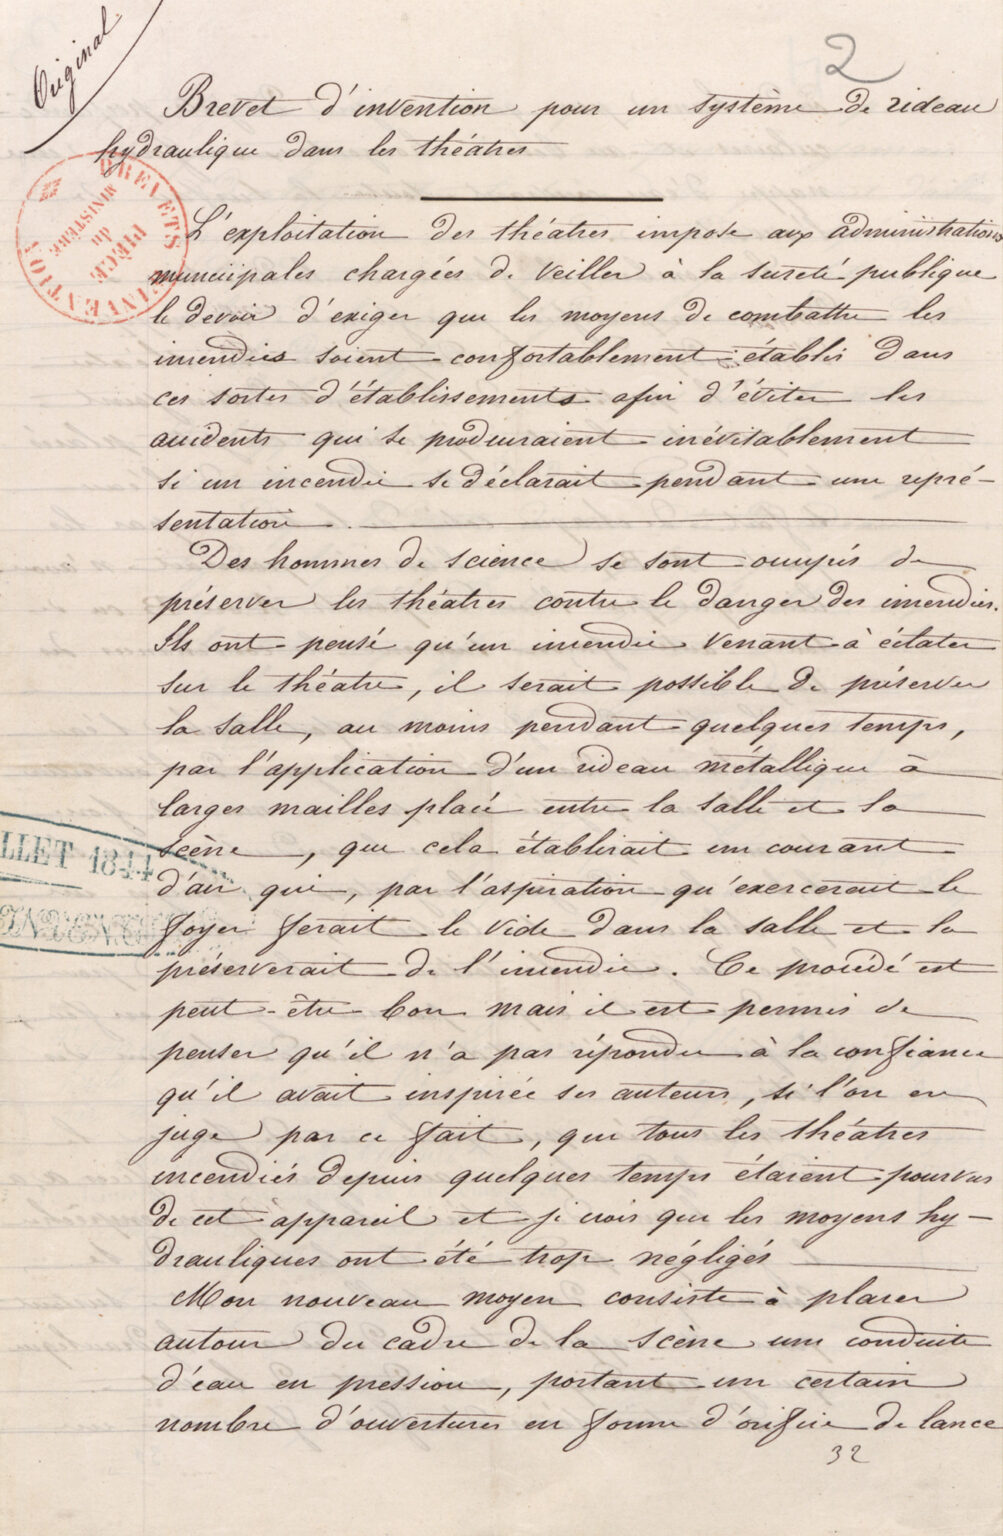 Original
2
Brevet d'invention pour un système de rideau
hydraulique dans les théâtres
BREVETS D'INVENTION
MINISTÈRE
du
PIECE
L'exploitation des théâtres impose aux administrations
municipales chargées de veiller à la sureté publique
le devoir d'exiger que les moyens de combattre les
incendies soient confortablement établis dans
ces sortes d'établissements afin d'éviter les
accidents qui se produiraient inévitablement
si un incendie se déclarait pendant une repré-
sentation.
Des hommes de science se sont occupés de
préserver les théâtres contre le danger des incendies.
Ils ont pensé qu'un incendie venant à éclater
sur le théâtre, il serait possible de préserver
la salle, au moins pendant quelques temps,
par l'application d'un rideau métallique à
larges mailles placé entre la salle et la
scène, que cela établirait un courant
d'air qui, par l'aspiration qu'exercerait le
foyer ferait le vide dans la salle et la
préserverait de l'incendie. Ce procédé est
peut-être bon mais il est permis de
penser qu'il n'a pas répondu à la confiance
qu'il avait inspirée ses auteurs, si l'on en
juge par ce fait, que tous les théâtres
incendiés depuis quelques temps étaient pourvus
de cet appareil et je crois que les moyens hy-
drauliques ont été trop négligés
Mon nouveau moyen consiste à placer
autour du cadre de la scène une conduite
d'eau en pression, portant un certain
nombre d'ouvertures en forme d'orifice de lance
32
LLET 1844